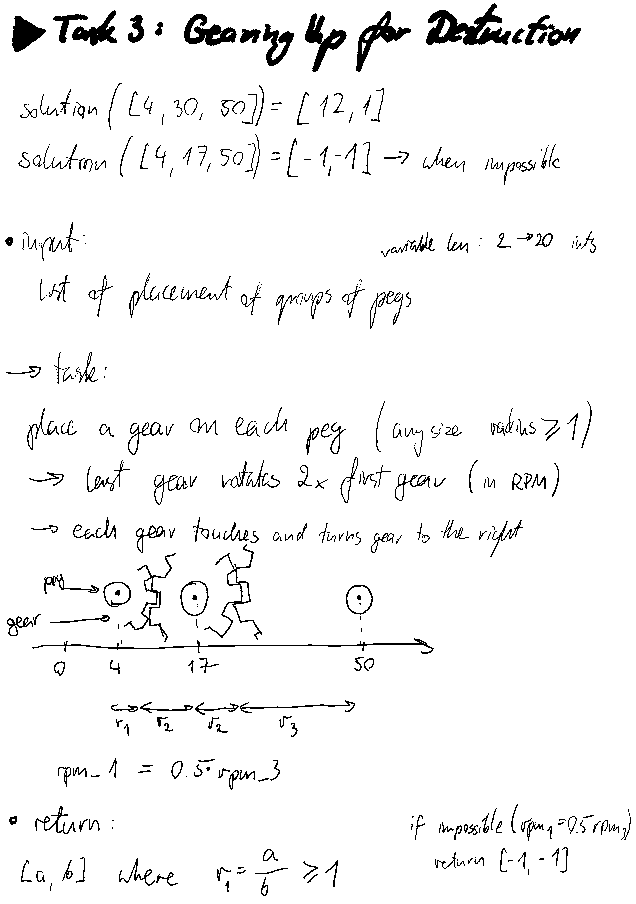 ▶ Task 3: Gearing Up for Destruction
solution ([4, 30, 50]) = [12, 1]
solution ([4, 17, 50]) = [-1, -1] → when impossible
• input: variable len: 2 → 20 ints
list of placement of groups of pegs
→ task:
place a gear on each peg (any size radius ≥ 1)
→ last gear rotates 2x first gear (in RPM)
→ each gear touches and turns gear to the right
peg
gear
0 4 17 50
r₁ r₂ r₂ r₃
rpm_1 = 0.5·rpm_3
• return: if impossible (rpm₁ = 0.5 rpm₃)
return [-1, -1]
[a, b] where r₁ = a/b ≥ 1